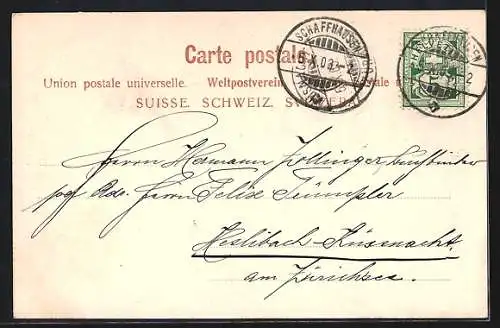 Carte postale.
Union postale universelle. Weltpostverein. postale
SUISSE. SCHWEIZ. SVIZZERA.
SCHAFFHAUSEN
Herrn Hermann Zollinger
Adr. Herrn Felix Trümpler
Heslibach-Küsnacht
am Zürichsee.